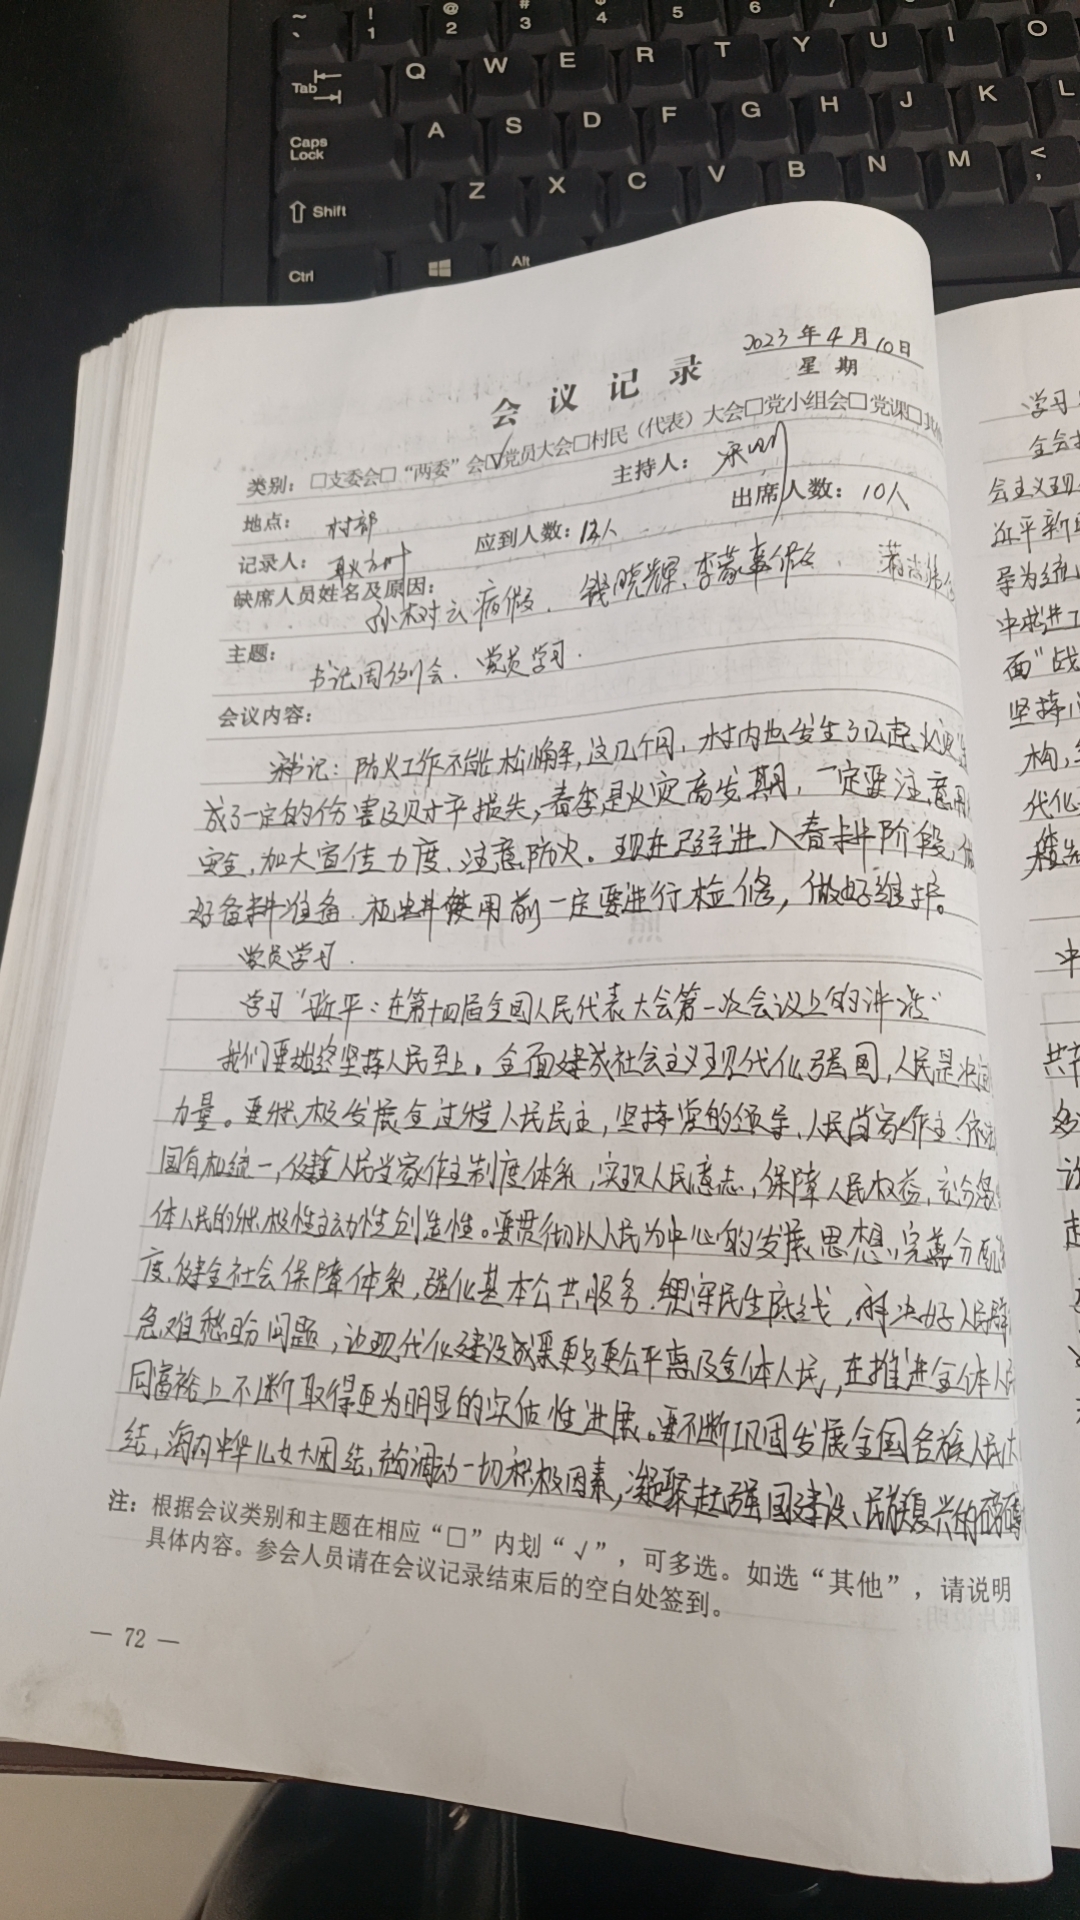 ~ ! @ # $
` 1 2 3 4 5 6 7
Tab Q W E R T Y U I O
Caps Lock A S D F G H J K L
Shift Z X C V B N M < ,
Ctrl Alt
2023年4月10日
星期
会议记录
类别：□支委会□“两委”会☑党员大会□村民（代表）大会□党小组会□党课□其他
地点：村部 主持人：宋
记录人：耿 应到人数：13人 出席人数：10人
缺席人员姓名及原因：
孙树云病假、钱晓辉、李蒙事假
主题：书记周例会、党员学习.
会议内容：
宋书记：防火工作不能松懈，这几个月，村内也发生了几起火灾
成了一定的伤害及财产损失，春季是火灾高发期，一定要注意用
安全，加大宣传力度，注意防火。现在已经进入春耕阶段，做
好备耕准备，机井使用前一定要进行检修，做好维护。
党员学习.
学习“习近平：在第十四届全国人民代表大会第一次会议上的讲话”
我们要始终坚持人民至上。全面建成社会主义现代化强国，人民是决定
力量。要积极发展全过程人民民主，坚持党的领导、人民当家作主、依法
国有机统一，健全人民当家作主制度体系，实现人民意志，保障人民权益，充分激
体人民的积极性主动性创造性。要贯彻以人民为中心的发展思想，完善分配
度，健全社会保障体系，强化基本公共服务，兜牢民生底线，解决好人民群
急难愁盼问题，让现代化建设成果更多更公平惠及全体人民，在推进全体人民
同富裕上不断取得更为明显的实质性进展。要不断巩固发展全国各族人民大
结，海内外中华儿女大团结，充分调动一切积极因素，凝聚起强国建设、民族复兴的磅礴
注：根据会议类别和主题在相应“□”内划“√”，可多选。如选“其他”，请说明
具体内容。参会人员请在会议记录结束后的空白处签到。
— 72 —
学习
全会
会主义现
近平新时
导为统
中推进
面”战
坚持
构，
代化
中
共